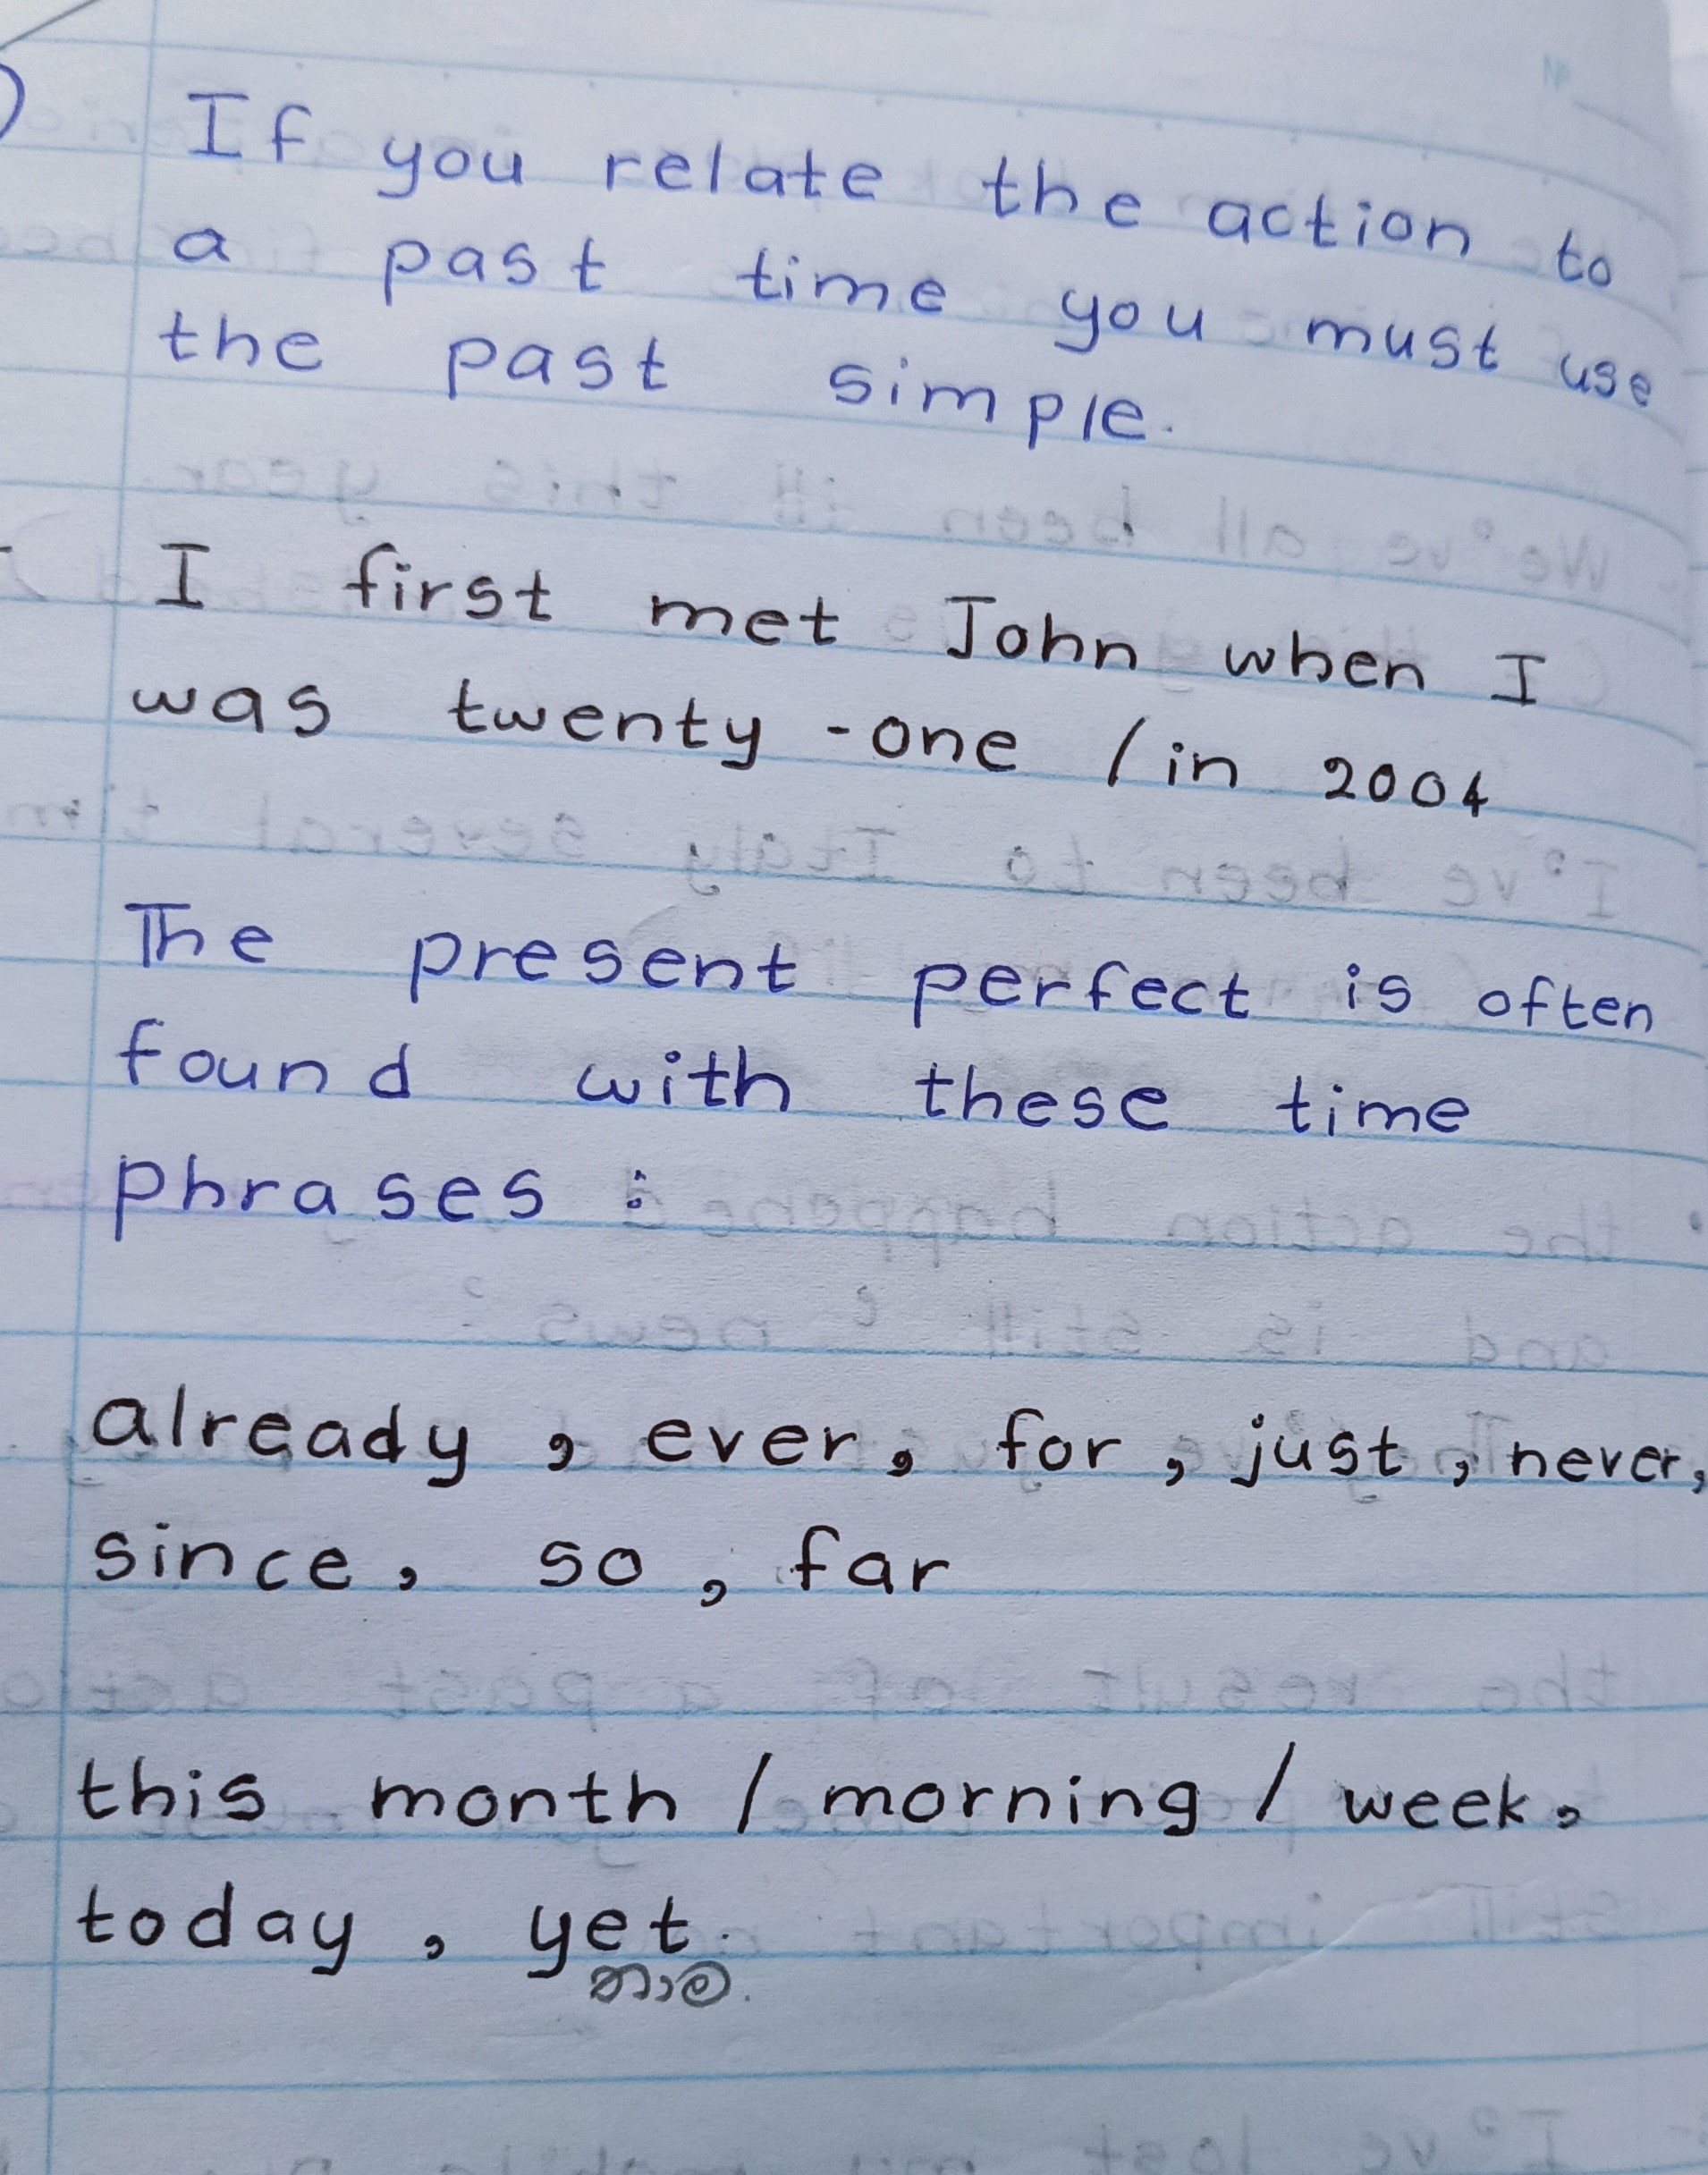 If you relate the action to
a past time you must use
the past simple.
I first met John when I
was twenty-one / in 2004
The present perfect is often
found with these time
phrases :
already, ever, for, just, never,
since, so, far
this month / morning / week,
today, yet.
තාම.